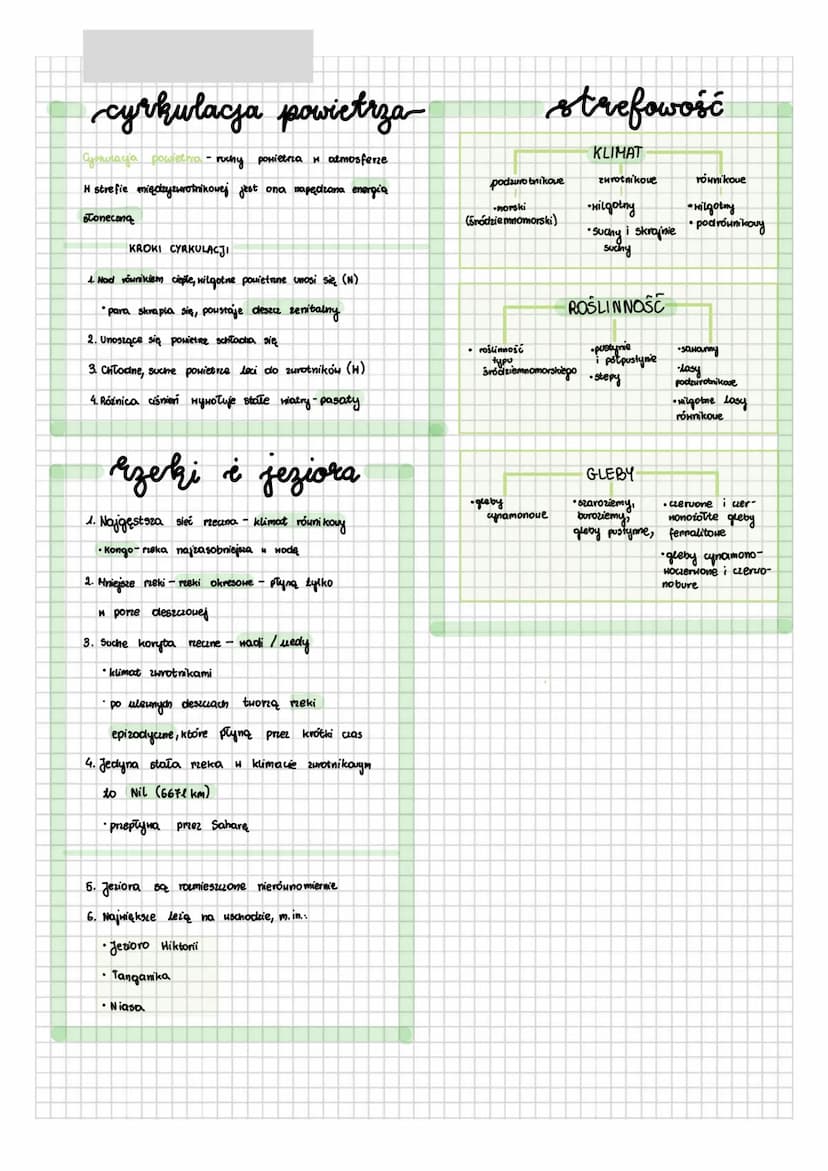 cyrkulacja powietrza
Cyrkulacja powietrza - ruchy powietrza w atmosferze
W strefie międzyzwrotnikowej jest ona napędzana energią
słoneczną
KROKI CYRKULACJI
1. Nad równikiem ciepłe, wilgotne powietrze unosi się (N)
• para skrapla się, powstaje deszcz zenitalny
2. Unoszące się powietrze schładza się
3. Chłodne, suche powietrze leci do zwrotników (W)
4. Różnica ciśnień wywołuje stałe wiatry - pasaty
rzeki i jeziora
1. Najgęstsza sieć rzeczna - klimat równikowy
• Kongo - rzeka najzasobniejsza w wodę
2. Mniejsze rzeki - rzeki okresowe - płyną tylko
w porze deszczowej
3. Suche koryta rzeczne - wadi / uedy
• klimat zwrotnikami
• po ulewnych deszczach tworzą rzeki
epizodyczne, które płyną przez krótki czas
4. Jedyna stała rzeka w klimacie zwrotnikowym
to Nil (6671 km)
• przepływa przez Saharę
5. Jeziora są rozmieszczone nierównomiernie
6. Największe leżą na wschodzie, m.in.:
• Jezioro Wiktorii
• Tanganika
• Niasa
strefowość
KLIMAT
podzwrotnikowe zwrotnikowe równikowe
•morski
(śródziemnomorski)
•wilgotny
•suchy i skrajnie
suchy
•wilgotny
•podrównikowy
ROŚLINNOŚĆ
• roślinność
typu
śródziemnomorskiego
•pustynie
i półpustynie
•stepy
•sawanny
•lasy
podzwrotnikowe
•wilgotne lasy
równikowe
GLEBY
•gleby
cynamonowe
•szaroziemy,
buroziemy,
gleby pustynne,
•czerwone i czer-
wonożółte gleby
ferralitowe
•gleby cynamono-
woczerwone i czerwo-
nobure